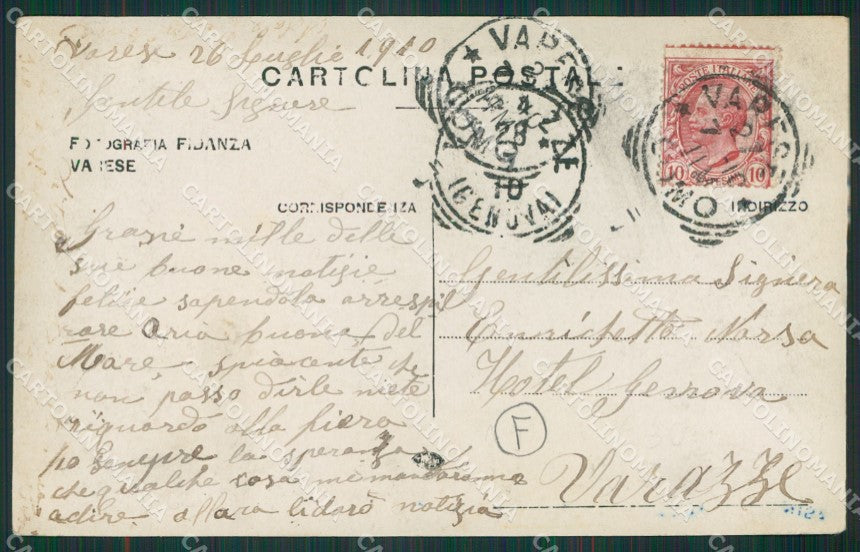 Varese 26 Luglio 1910
CARTOLINA POSTALE
Gentile Signora
FOTOGRAFIA FIDANZA
VARESE
CORRISPONDENZA
INDIRIZZO
Grazie mille delle
sue buone notizie
felice sapendola a respi
rare aria buona del
Mare, spiacente che
non posso dirle niete
riguardo alla fiera
ho sempre la speranza
che qualche cosa mi mandaranno
a dire allora li darò notizia
Gentilissima Signora
Enrichetta Norsa
Hotel Genova
Varazze
F
VARESE
COMO
VARAZZE
28
10
(GENOVA)
VARESE
COMO
POSTE ITALIANE
10 10
CARTOLINOMANIA